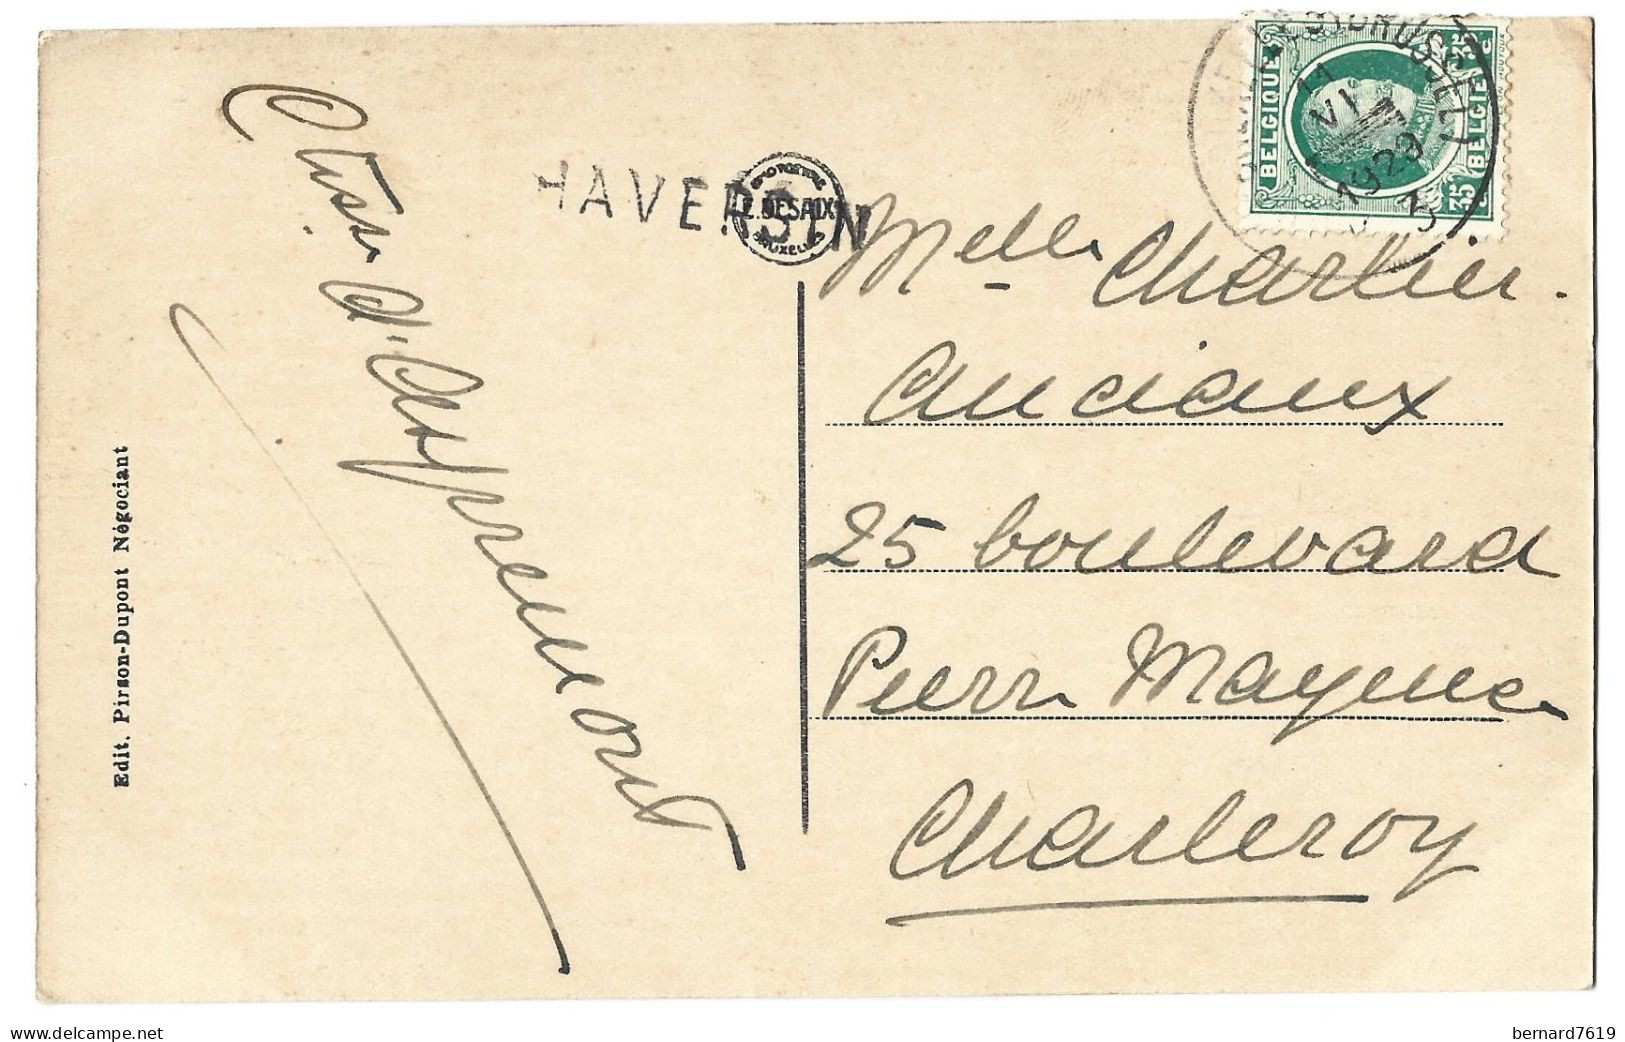 HAVERSIN
E. DESAIX
BRUXELLES
BELGIQUE
BELGIË
35 c
35
VI
1929
Melle Charlier
Anciaux
25 boulevard
Pierre Mayence
Charleroy
d'Aspremont
Edit. Pirson-Dupont Négociant
delcampe.net
bernard7619